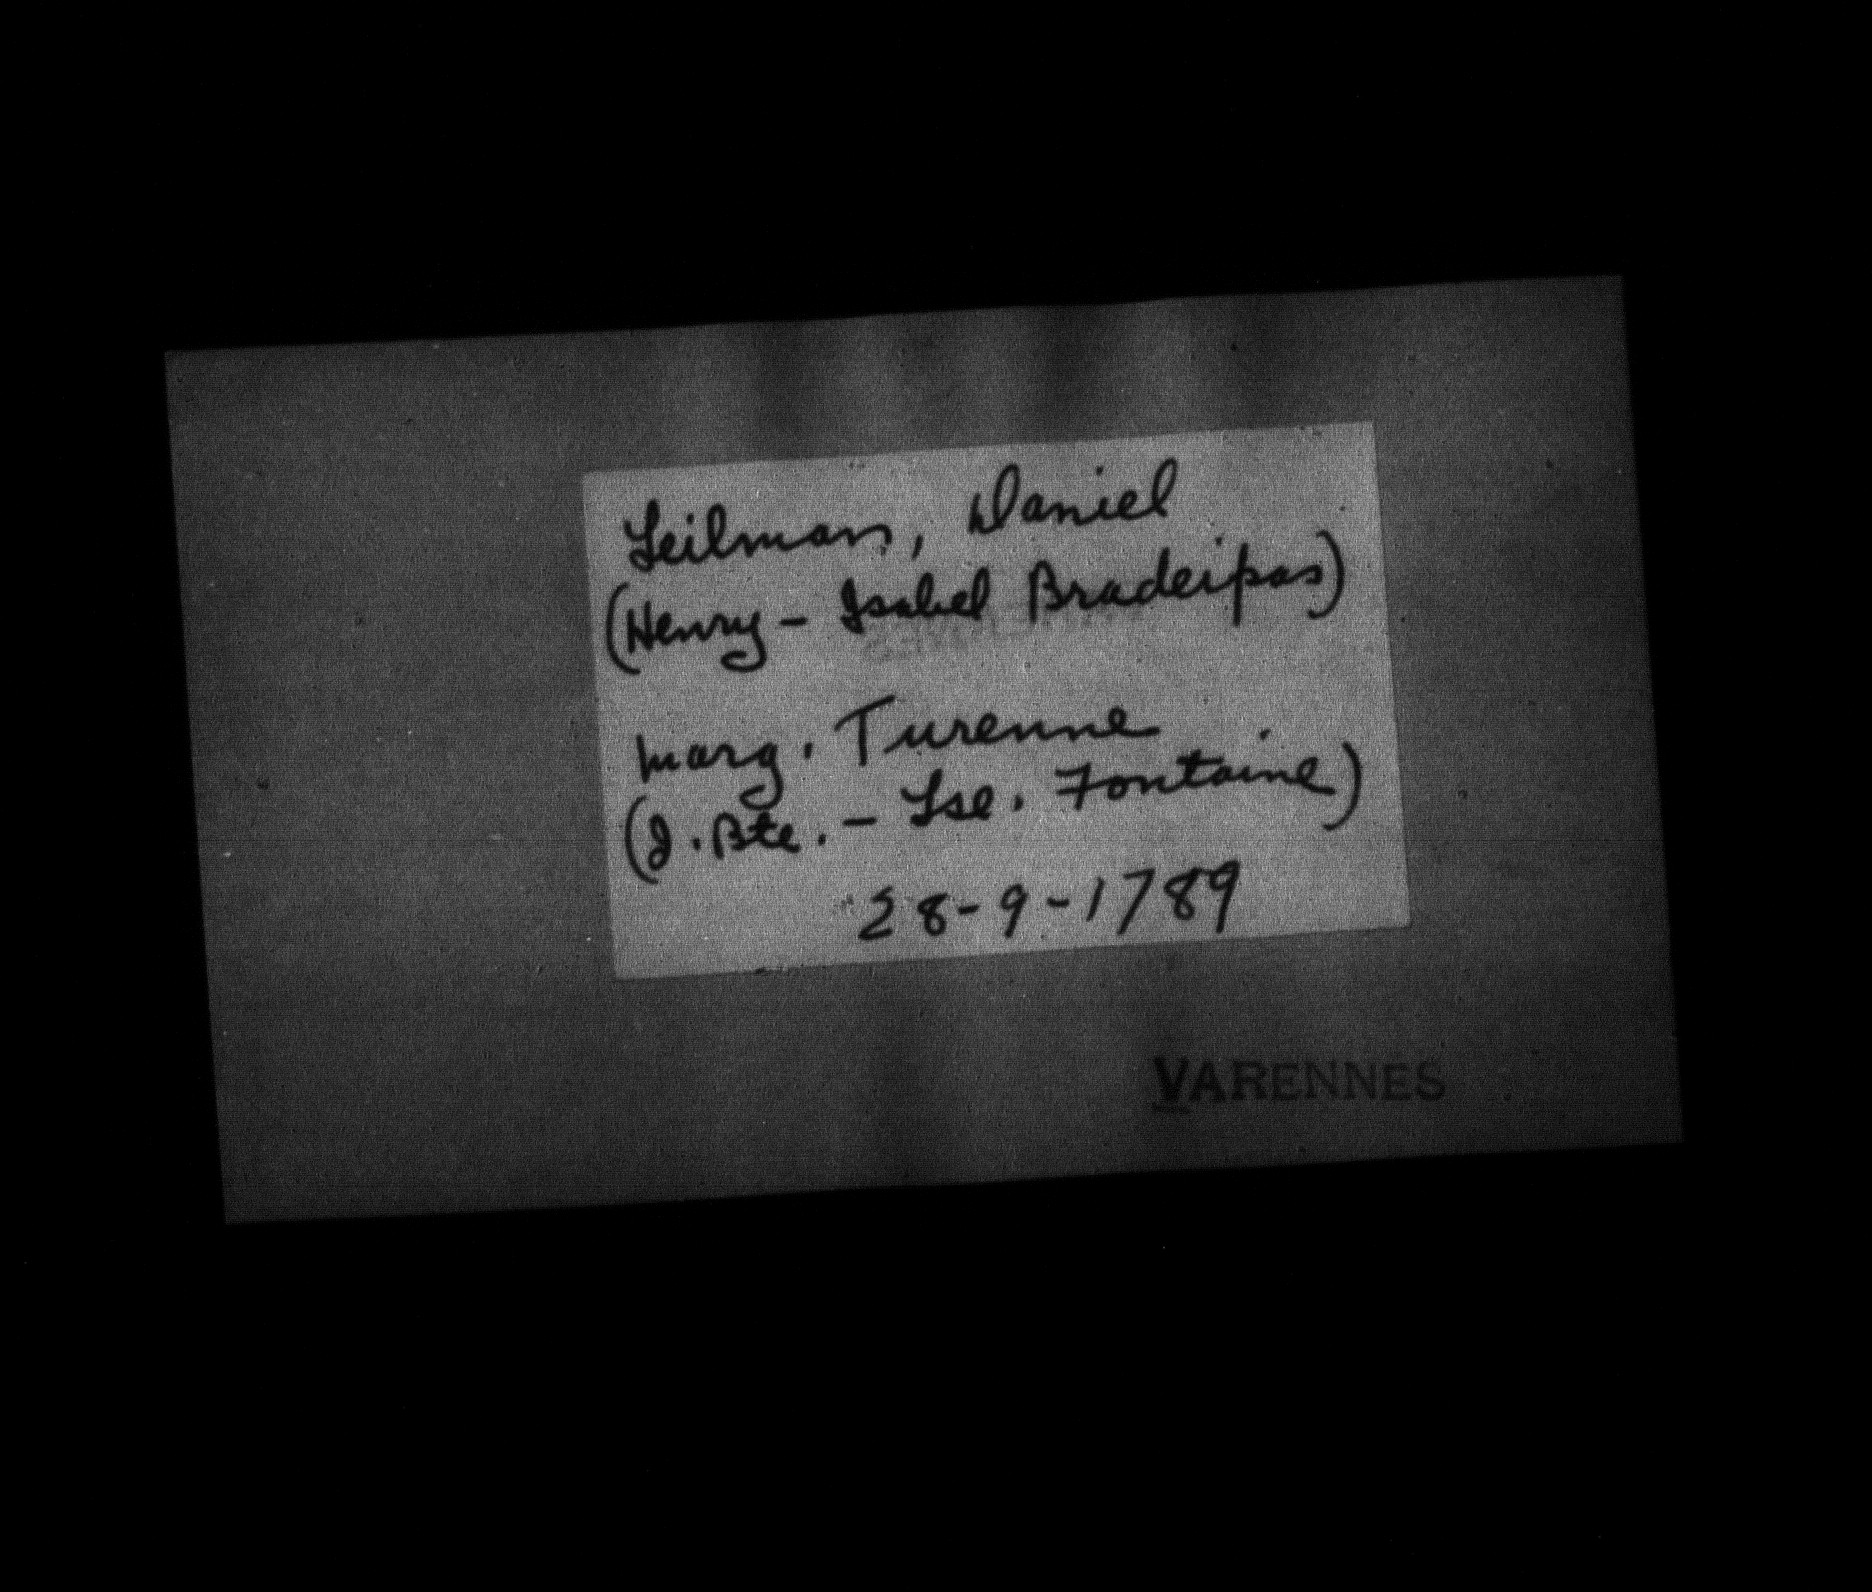 Leilman, Daniel
(Henry - Isabel Bradeipas)
Marg. Turenne
(J. Bte. - Lse. Fontaine)
28-9-1789
VARENNES